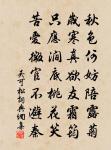 秋色何妨陪露菊
歲寒真欲友霜筠
只應澗底桃花
苦愛微官不避秦
吴可松詞兵網集